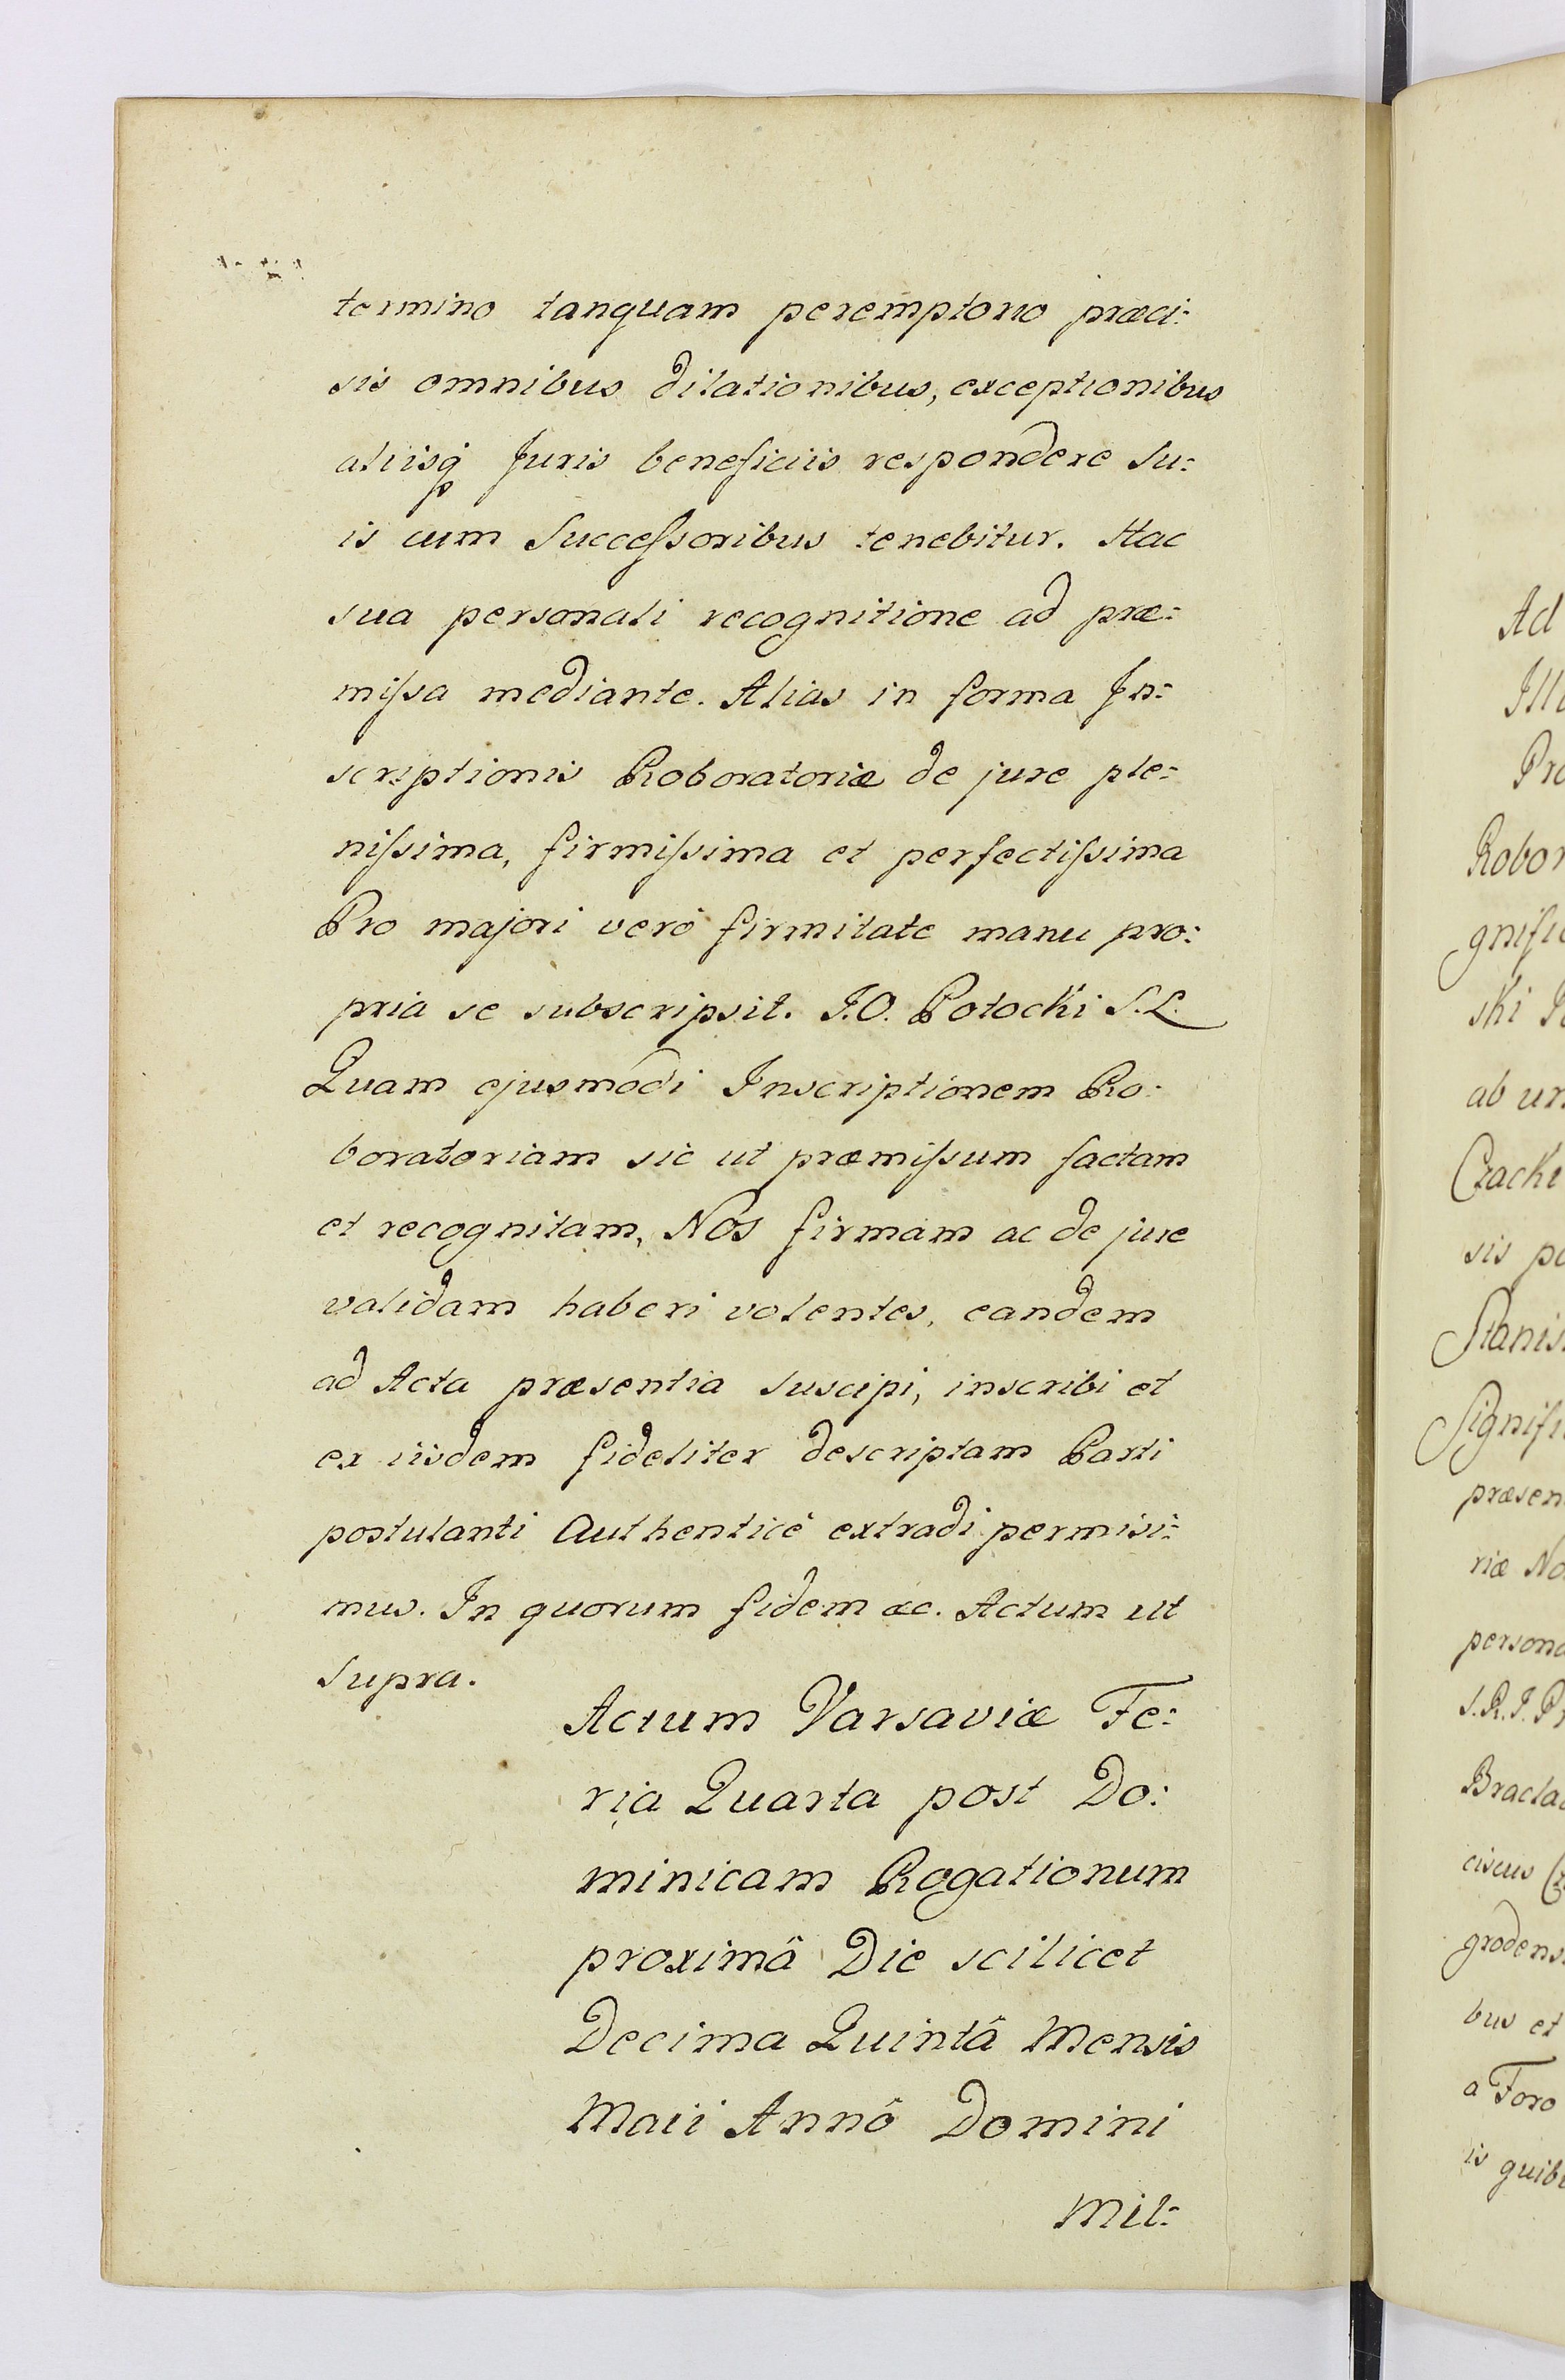 termino tanquam peremptorio præci:
sis omnibus dilationibus, exceptionibus
aliisq Juris beneficiis respondere Su:
is cum Successoribus tenebitur. Hac
sua personali recognitione ad præ:
missa mediante. Alias in forma In:
scriptionis Roboratoriæ de jure ple:
nissima, firmissima et perfectissima
Pro majori verò firmitate manu pro:
pria se subscripsit. I.O. Potocki S.L.
Quam ejusmodi Inscriptionem Ro:
boratoriam sic ut præmissum factam
et recognitam, Nos firmam ac de jure
validam haberi volentes, eandem
ad Acta præsentia suscipi, inscribi et
ex iisdem fideliter descriptam Parti
postulanti Authenticè extradi permisi:
mus. In quorum fidem &c. Actum ut
Supra.
Actum Varsaviæ Fe:
ria Quarta post Do:
minicam Rogationum
proximâ Die scilicet
Decima Quintâ Mensis
Maii Annô Domini
Mil:
Ad
Ill
Pro
Robor
gnific
ski
ab un
Czacki
sis po
Stanis
Signifi
præsen
riæ No
persona
S.R.I. Pr
Bracla
ciscus
grodens
bus et
a Foro
is quib